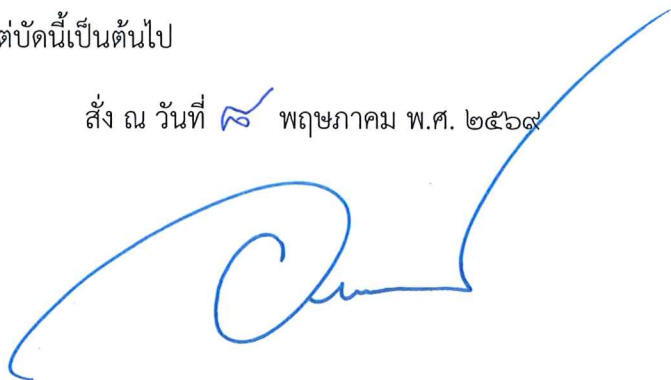 ต่บัดนี้เป็นต้นไป
สั่ง ณ วันที่ ๘ พฤษภาคม พ.ศ. ๒๕๖๙